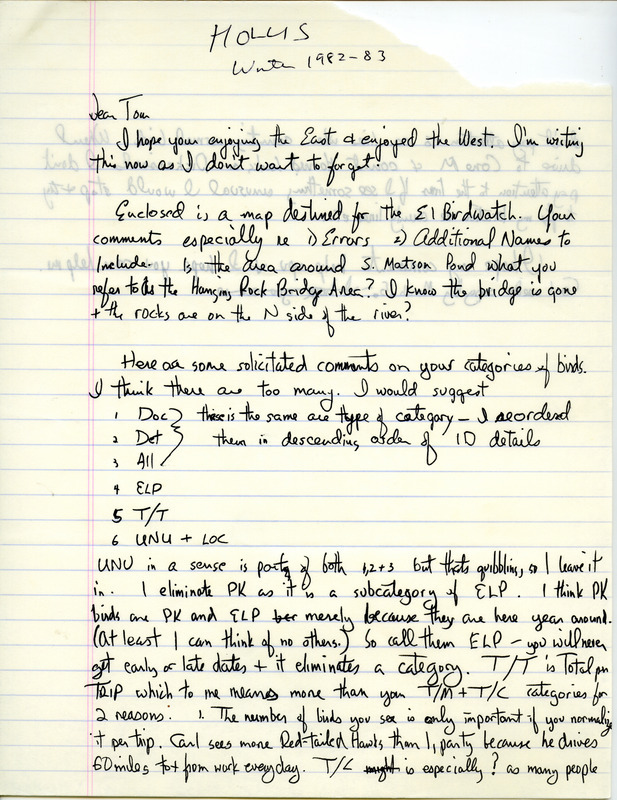 HOLLIS
Winter 1982-83
Dear Tom
I hope your enjoying the East & enjoyed the West. I'm writing
this now as I don't want to forget.
Enclosed is a map destined for the EI Birdwatch. Your
comments especially re 1) Errors 2) Additional Names to
Include. Is the area around S. Matson Pond what you
refer to as the Hanging Rock Bridge Area? I know the bridge is gone
+ the rocks are on the N side of the river?
Here are some solicitated comments on your categories of birds.
I think there are too many. I would suggest
1 Doc } these is the same are type of category - I reordered
2 Det } them in descending order of ID details
3 All
4 ELP
5 T/T
6 UNU + LOC
UNU in a sense is party of both 1,2+3 but thats quibbling, so I leave it
in. I eliminate PK as it is a subcategory of ELP. I think PK
birds are PK and ELP merely because they are here year around.
(At least I can think of no others.) So call them ELP - you will never
get early or late dates + it eliminates a category. T/T is Total per
TRIP which to me means more than your T/M + T/C categories for
2 reasons: 1. The number of birds you see is only important if you normalize
it per trip. Carl sees more Red-tailed Hawks than I, party because he drives
60 miles to + from work everyday. T/C is especially ? as many people